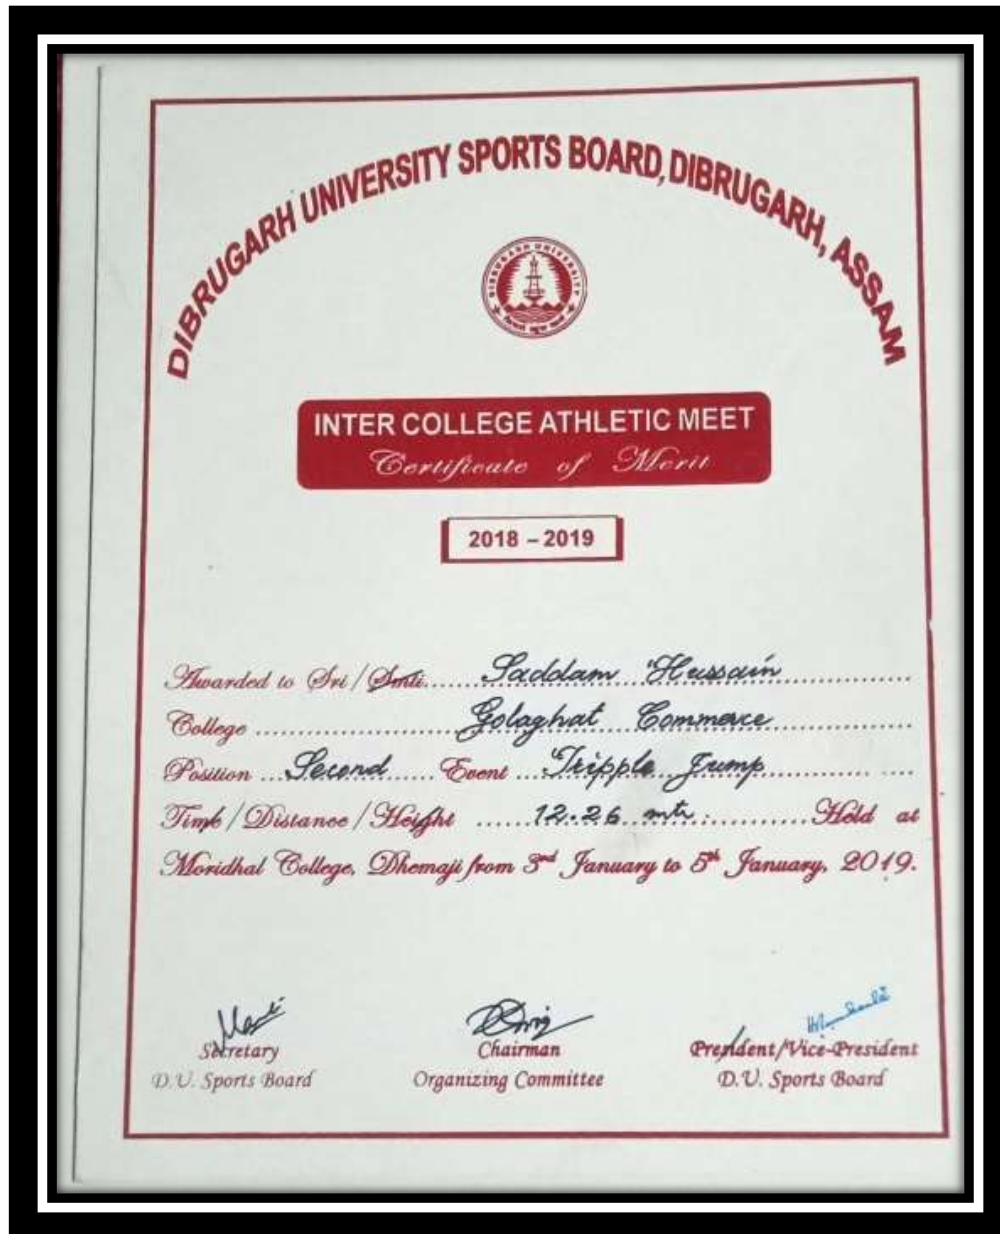 DIBRUGARH UNIVERSITY SPORTS BOARD, DIBRUGARH, ASSAM
DIBRUGARH UNIVERSITY
INTER COLLEGE ATHLETIC MEET
Certificate of Merit
2018 – 2019
Awarded to Sri/Smti Saddam Hussain
College Golaghat Commerce
Position Second Event Tripple Jump
Time/Distance/Height 12.26 mtr. Held at
Moridhal College, Dhemaji from 3rd January to 5th January, 2019.
Secretary
D.U. Sports Board
Chairman
Organizing Committee
President/Vice-President
D.U. Sports Board